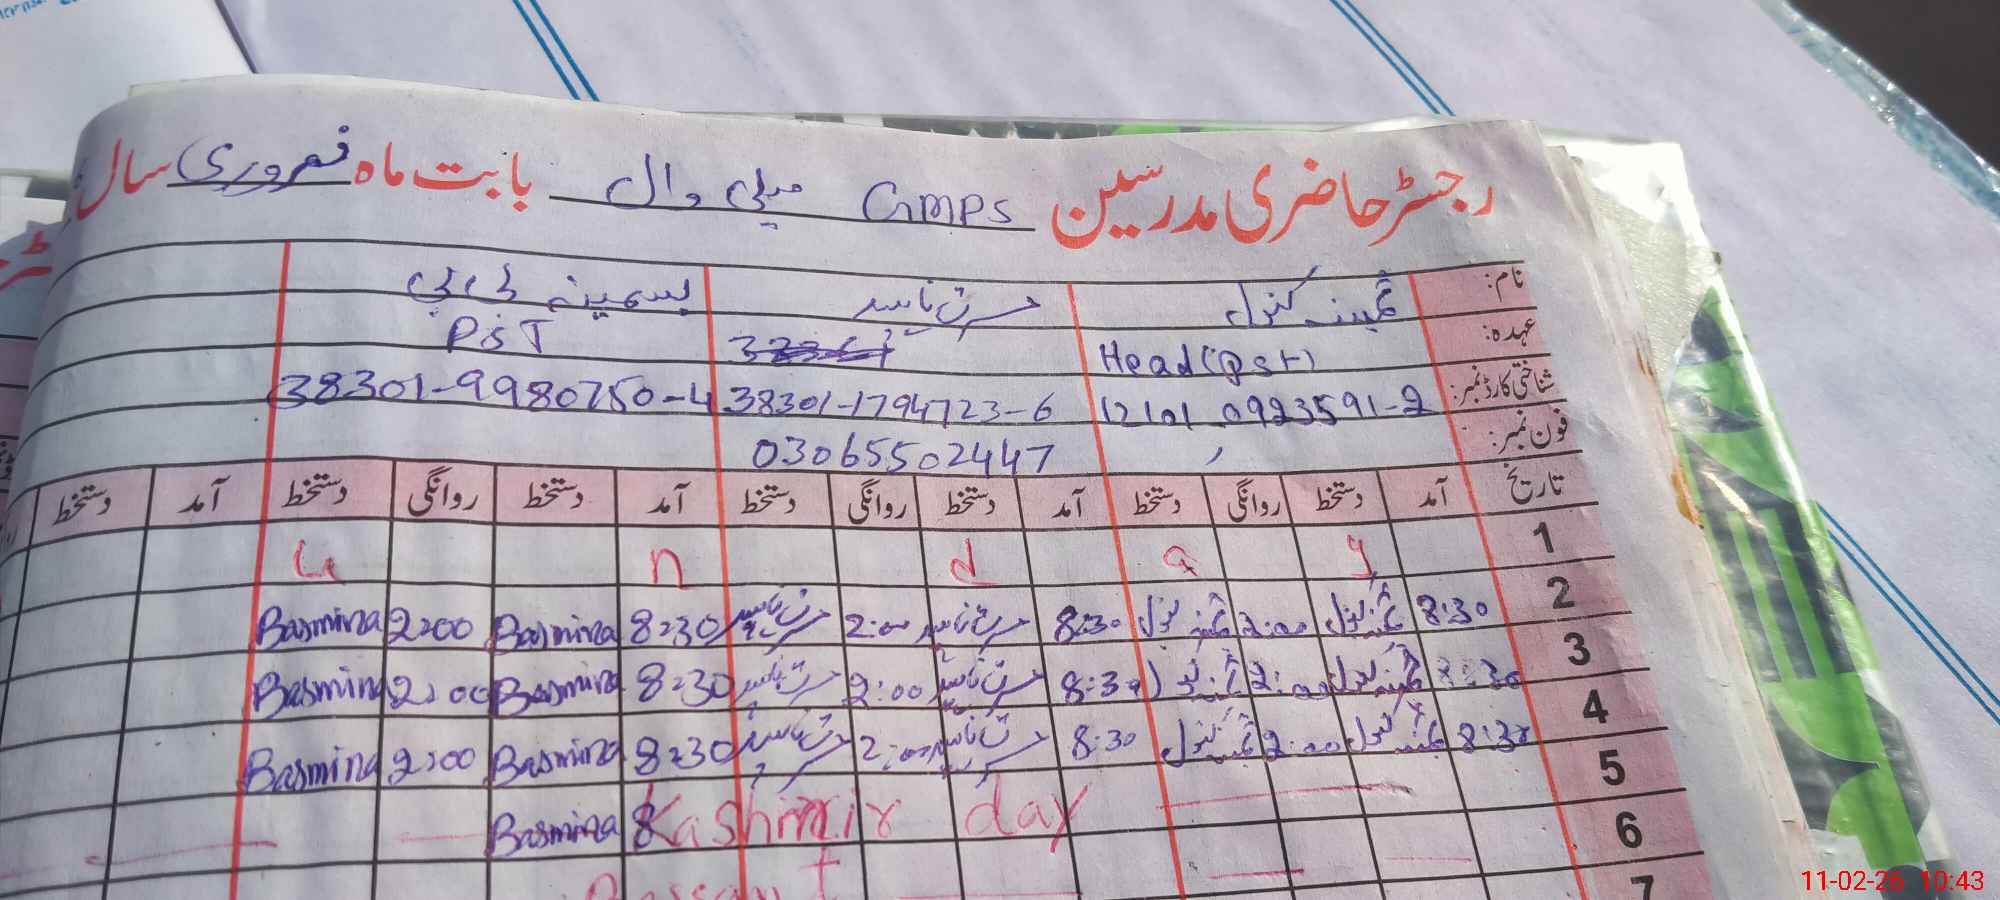 رجسٹر حاضری مدرسین GMPS میلی وال بابت ماہ فروری سال
نام: ثمینہ کنول مسرت یاسمین بسمینہ بی بی
عہدہ: Head(PST) PST
شناختی کارڈ نمبر: 12101-0923591-2 38301-1794723-6 38301-9980750-4
فون نمبر: 03065502447
تاریخ آمد دستخط روانگی دستخط آمد دستخط روانگی دستخط آمد دستخط روانگی دستخط آمد دستخط
1 y a d n u
2 8:30 ثمینہ کنول 2:00 ثمینہ کنول 8:30 2:00 8:30 Basmina 2:00 Basmina
3 8:30 ثمینہ کنول 2:00 ثمینہ کنول 8:30 2:00 8:30 Basmina 2:00 Basmina
4 8:30 ثمینہ کنول 2:00 ثمینہ کنول 8:30 2:00 8:30 Basmina 2:00 Basmina
5 Kashmir day 8 Basmina
6
7
11-02-26 10:43